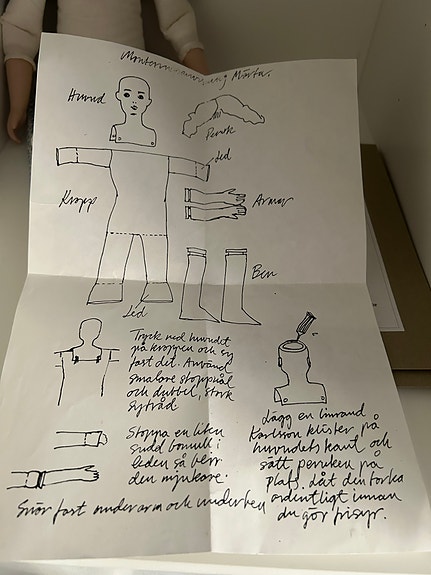 Monteringsanvisning Märta.
Huvud
Peruk
Led
Kropp
Armar
Ben
Led
Tryck ned huvudet
på kroppen och sy
fast det. Använd
smalare stoppnål
och dubbel, stark
sytråd
Stoppa en liten
sudd bomull i
leden så blir
den mjukare.
Snör fast underarm och underben
Lägg en limrand
Karlsson klister på
huvudets kant och
sätt peruken på
plats. Låt den torka
ordentligt innan
du gör frisyr.